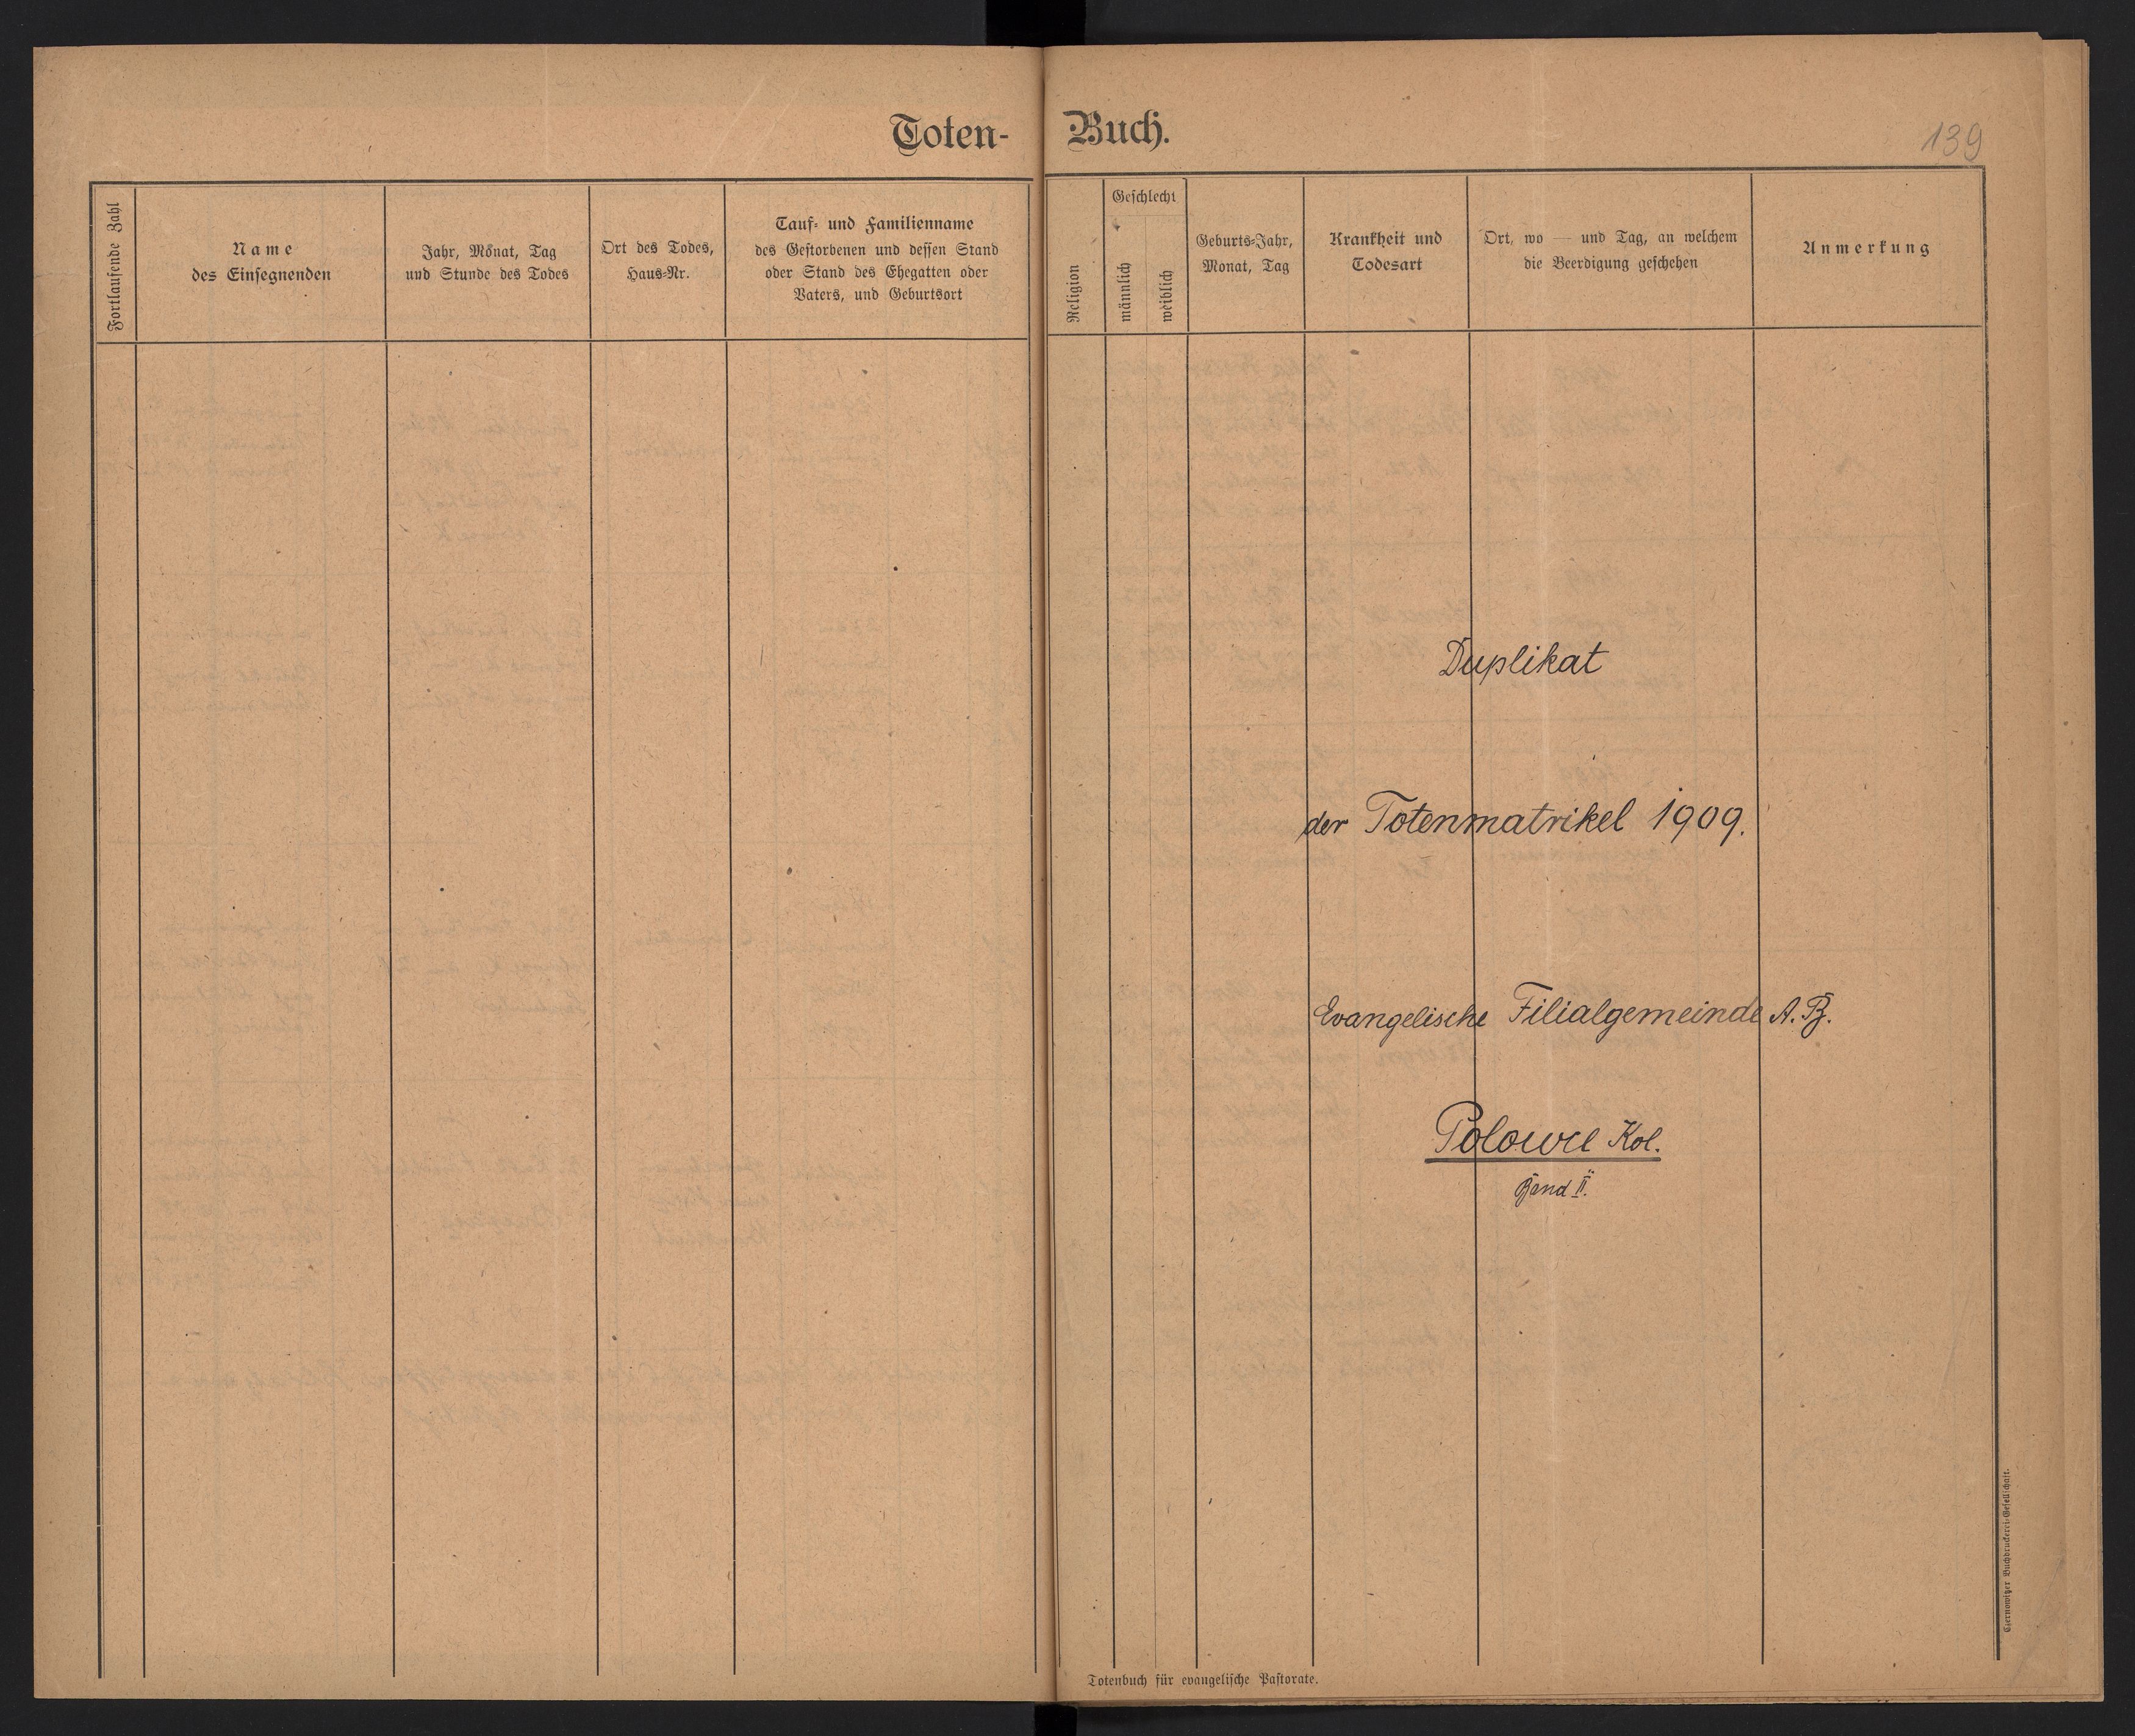 Toten- Buch.
139
Fortlaufende Zahl
Name
des Einsegnenden
Jahr, Monat, Tag
und Stunde des Todes
Ort des Todes,
Haus-Nr.
Tauf- und Familienname
des Gestorbenen und dessen Stand
oder Stand des Ehegatten oder
Vaters, und Geburtsort
Religion
Geschlecht
männlich
weiblich
Geburts-Jahr,
Monat, Tag
Krankheit und
Todesart
Ort, wo — und Tag, an welchem
die Beerdigung geschehen
Anmerkung
Duplikat
der Totenmatrikel 1909.
Evangelische Filialgemeinde A. B.
Polowce Kol.
Band II.
Czernowitzer Buchdruckerei-Gesellschaft.
Totenbuch für evangelische Pastorate.